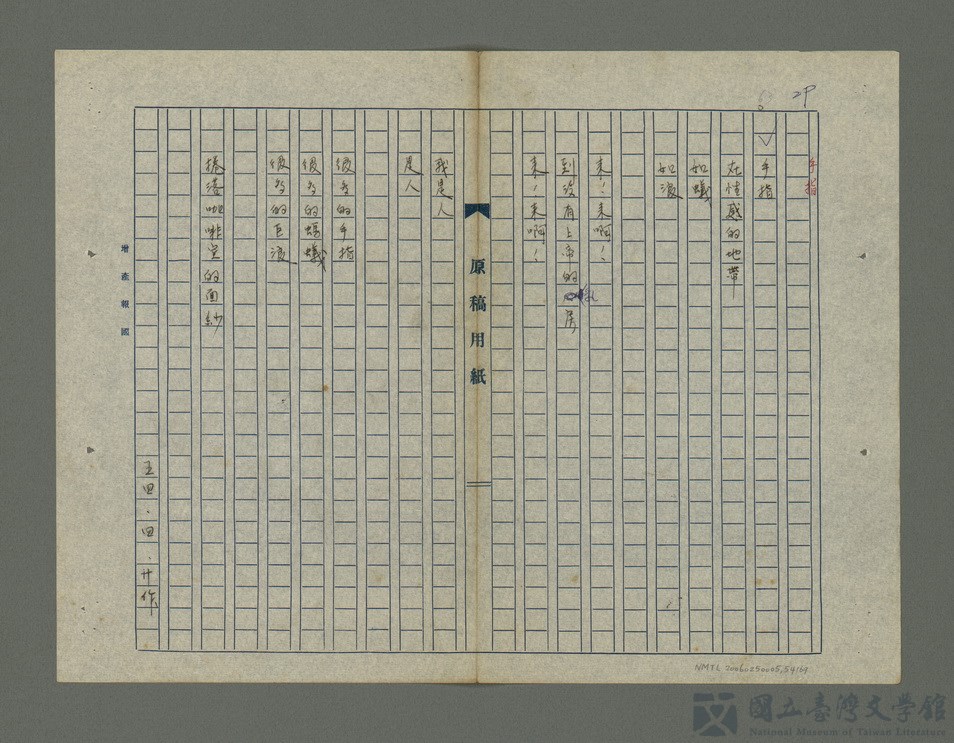 2P
手指
手指
在性感的地帶—
如蟻
如浪
來！來啊！
到沒有上帝的乳房
來！來啊！
原稿用紙
我是人
是人
很多的手指
很多的螞蟻
很多的巨浪
捲湧咖啡室的面紗
五四．四．廿作
增產報國
國立臺灣文學館
National Museum of Taiwan Literature